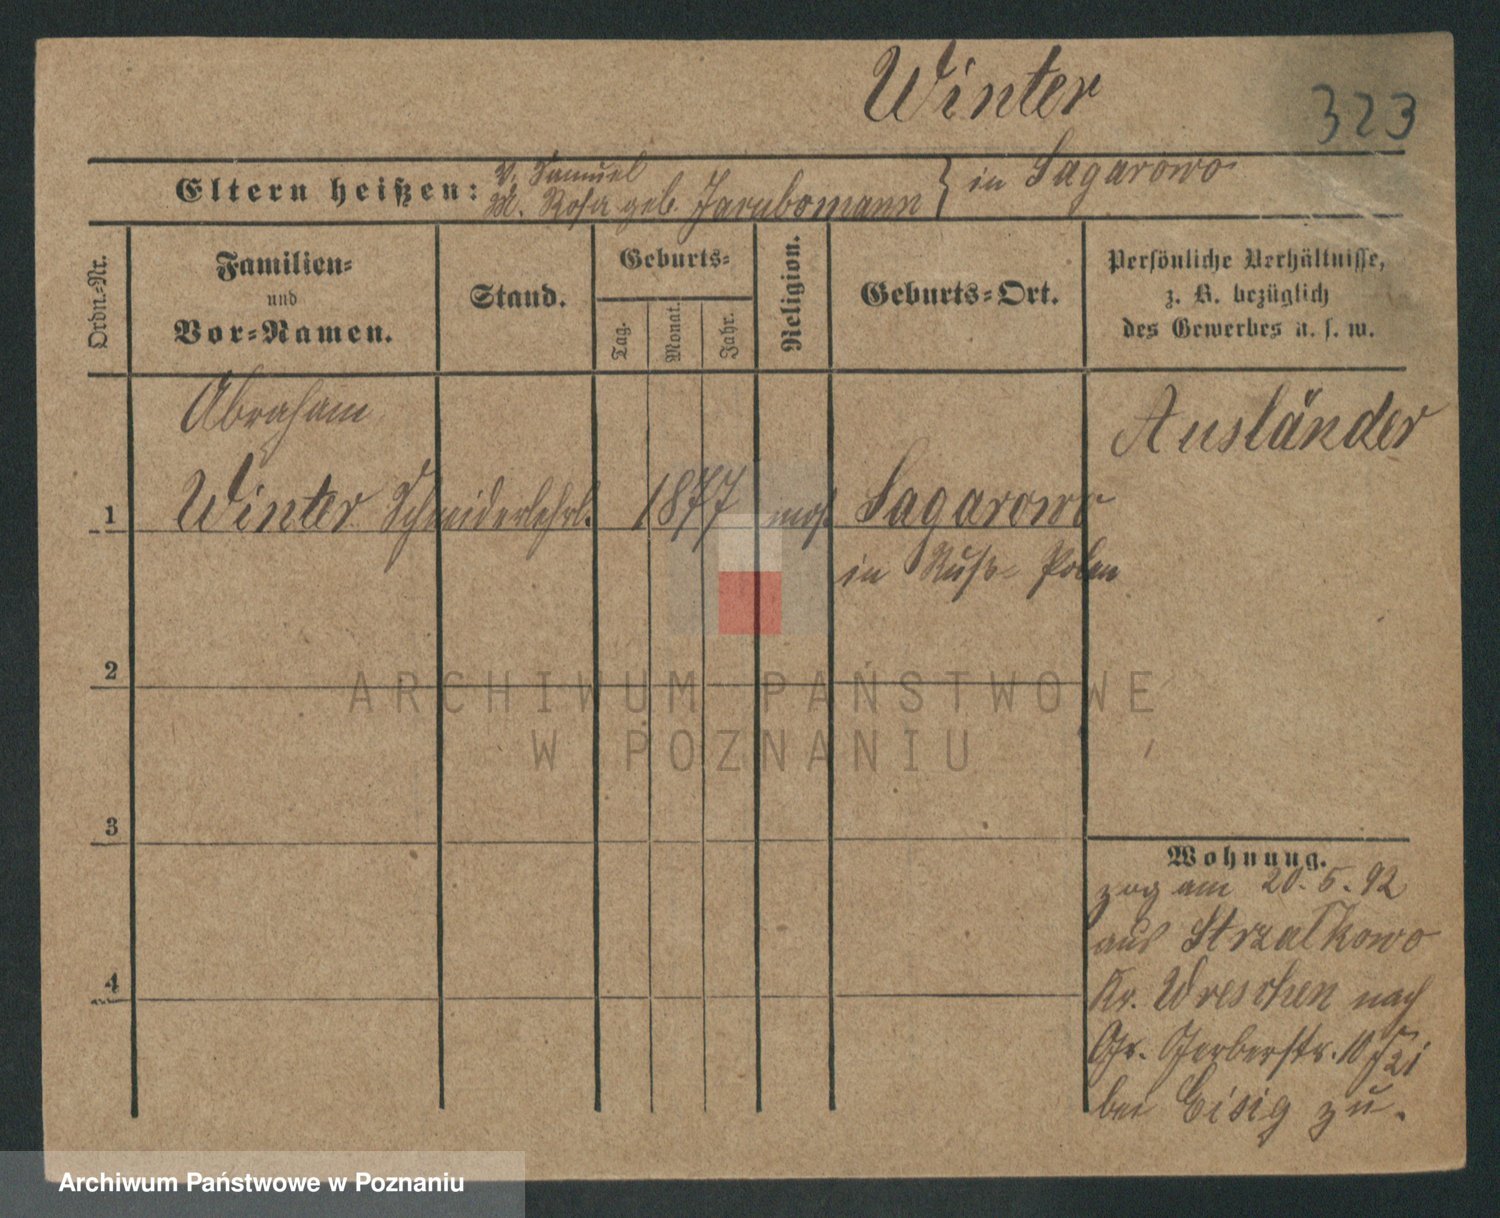 Winter
323
Eltern heißen:
V. Samuel
M. Rosa geb.
} in Sagarowo
Ordn.-Nr.
Familien-
und
Vor-Namen.
Stand.
Geburts-
Tag.
Monat.
Jahr.
Religion.
Geburts-Ort.
Persönliche Verhältnisse,
z. B. bezüglich
des Gewerbes u. s. w.
Abraham
Ausländer
1
Winter Schneiderlehrl. 1877 mos. Sagarowo
in Russ- Polen
2
ARCHIWUM PAŃSTWOWE
W POZNANIU
3
Wohnung.
zog am 20.5.92
aus Strzalkowo
Kr. Wreschen nach
4
Gr. Gerberstr. 10
bei Eisig zu.
Archiwum Państwowe w Poznaniu